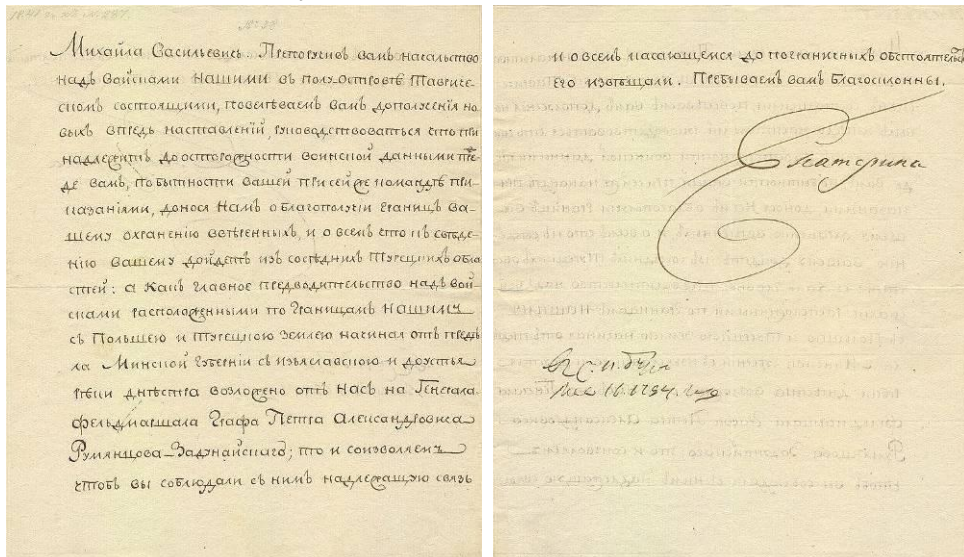 Михайла Васильевичь. Препоручивъ вамъ начальство
надъ войсками нашими въ полуостровѣ Тавриче-
скомъ состоящими, повелѣваемъ вамъ до положенія но-
выхъ впредь наставленій, руководствоваться что при
надлежитъ до осторожности воинской данными пре-
де вамъ, по бытности вашей при сей же командѣ при-
казаніями, донося Намъ о благополучіи границъ ва-
шему охраненію ввѣренныхъ, и о всемъ что къ свѣде-
нію вашему дойдетъ изъ сосѣднихъ Турецкихъ обла
стей: а какъ главное предводительство надъ вой-
сками расположенными по границамъ Нашимъ
съ Польшею и Турецкою Землею начиная отъ предѣ
ла Минской Губерніи съ Изъяславскою и до устья
рѣки Днѣстра возложено отъ Насъ на Генерала
фельдмаршала Графа Петра Александровича
Румянцова-Задунайскаго; то и соизволяемъ
чтобъ вы соблюдали съ нимъ надлежащую связь
и о всемъ касающемся до пограничныхъ обстоятель
его извѣщали. Пребываемъ вамъ благосклонны.
Екатерина
1794. году